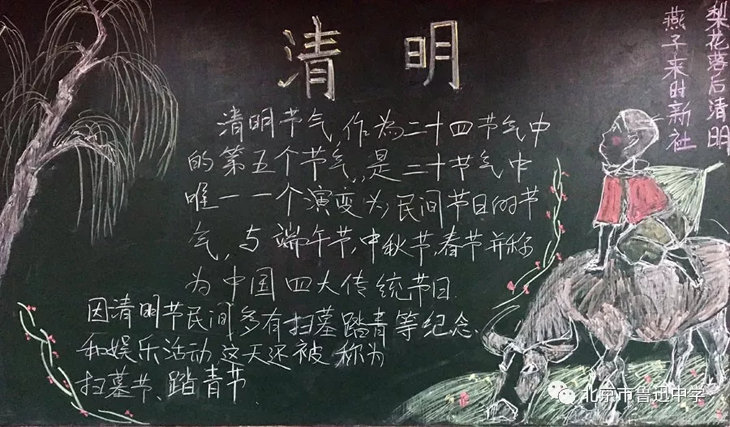 清明
燕子来时新社
梨花落后清明
清明节气,作为二十四节气中
的第五个节气,是二十节气中
唯一一个演变为民间节日的节
气,与端午节,中秋节,春节并称
为中国四大传统节日.
因清明节民间多有扫墓踏青等纪念
和娱乐活动,这天还被称为
扫墓节、踏青节.
北京市鲁迅中学